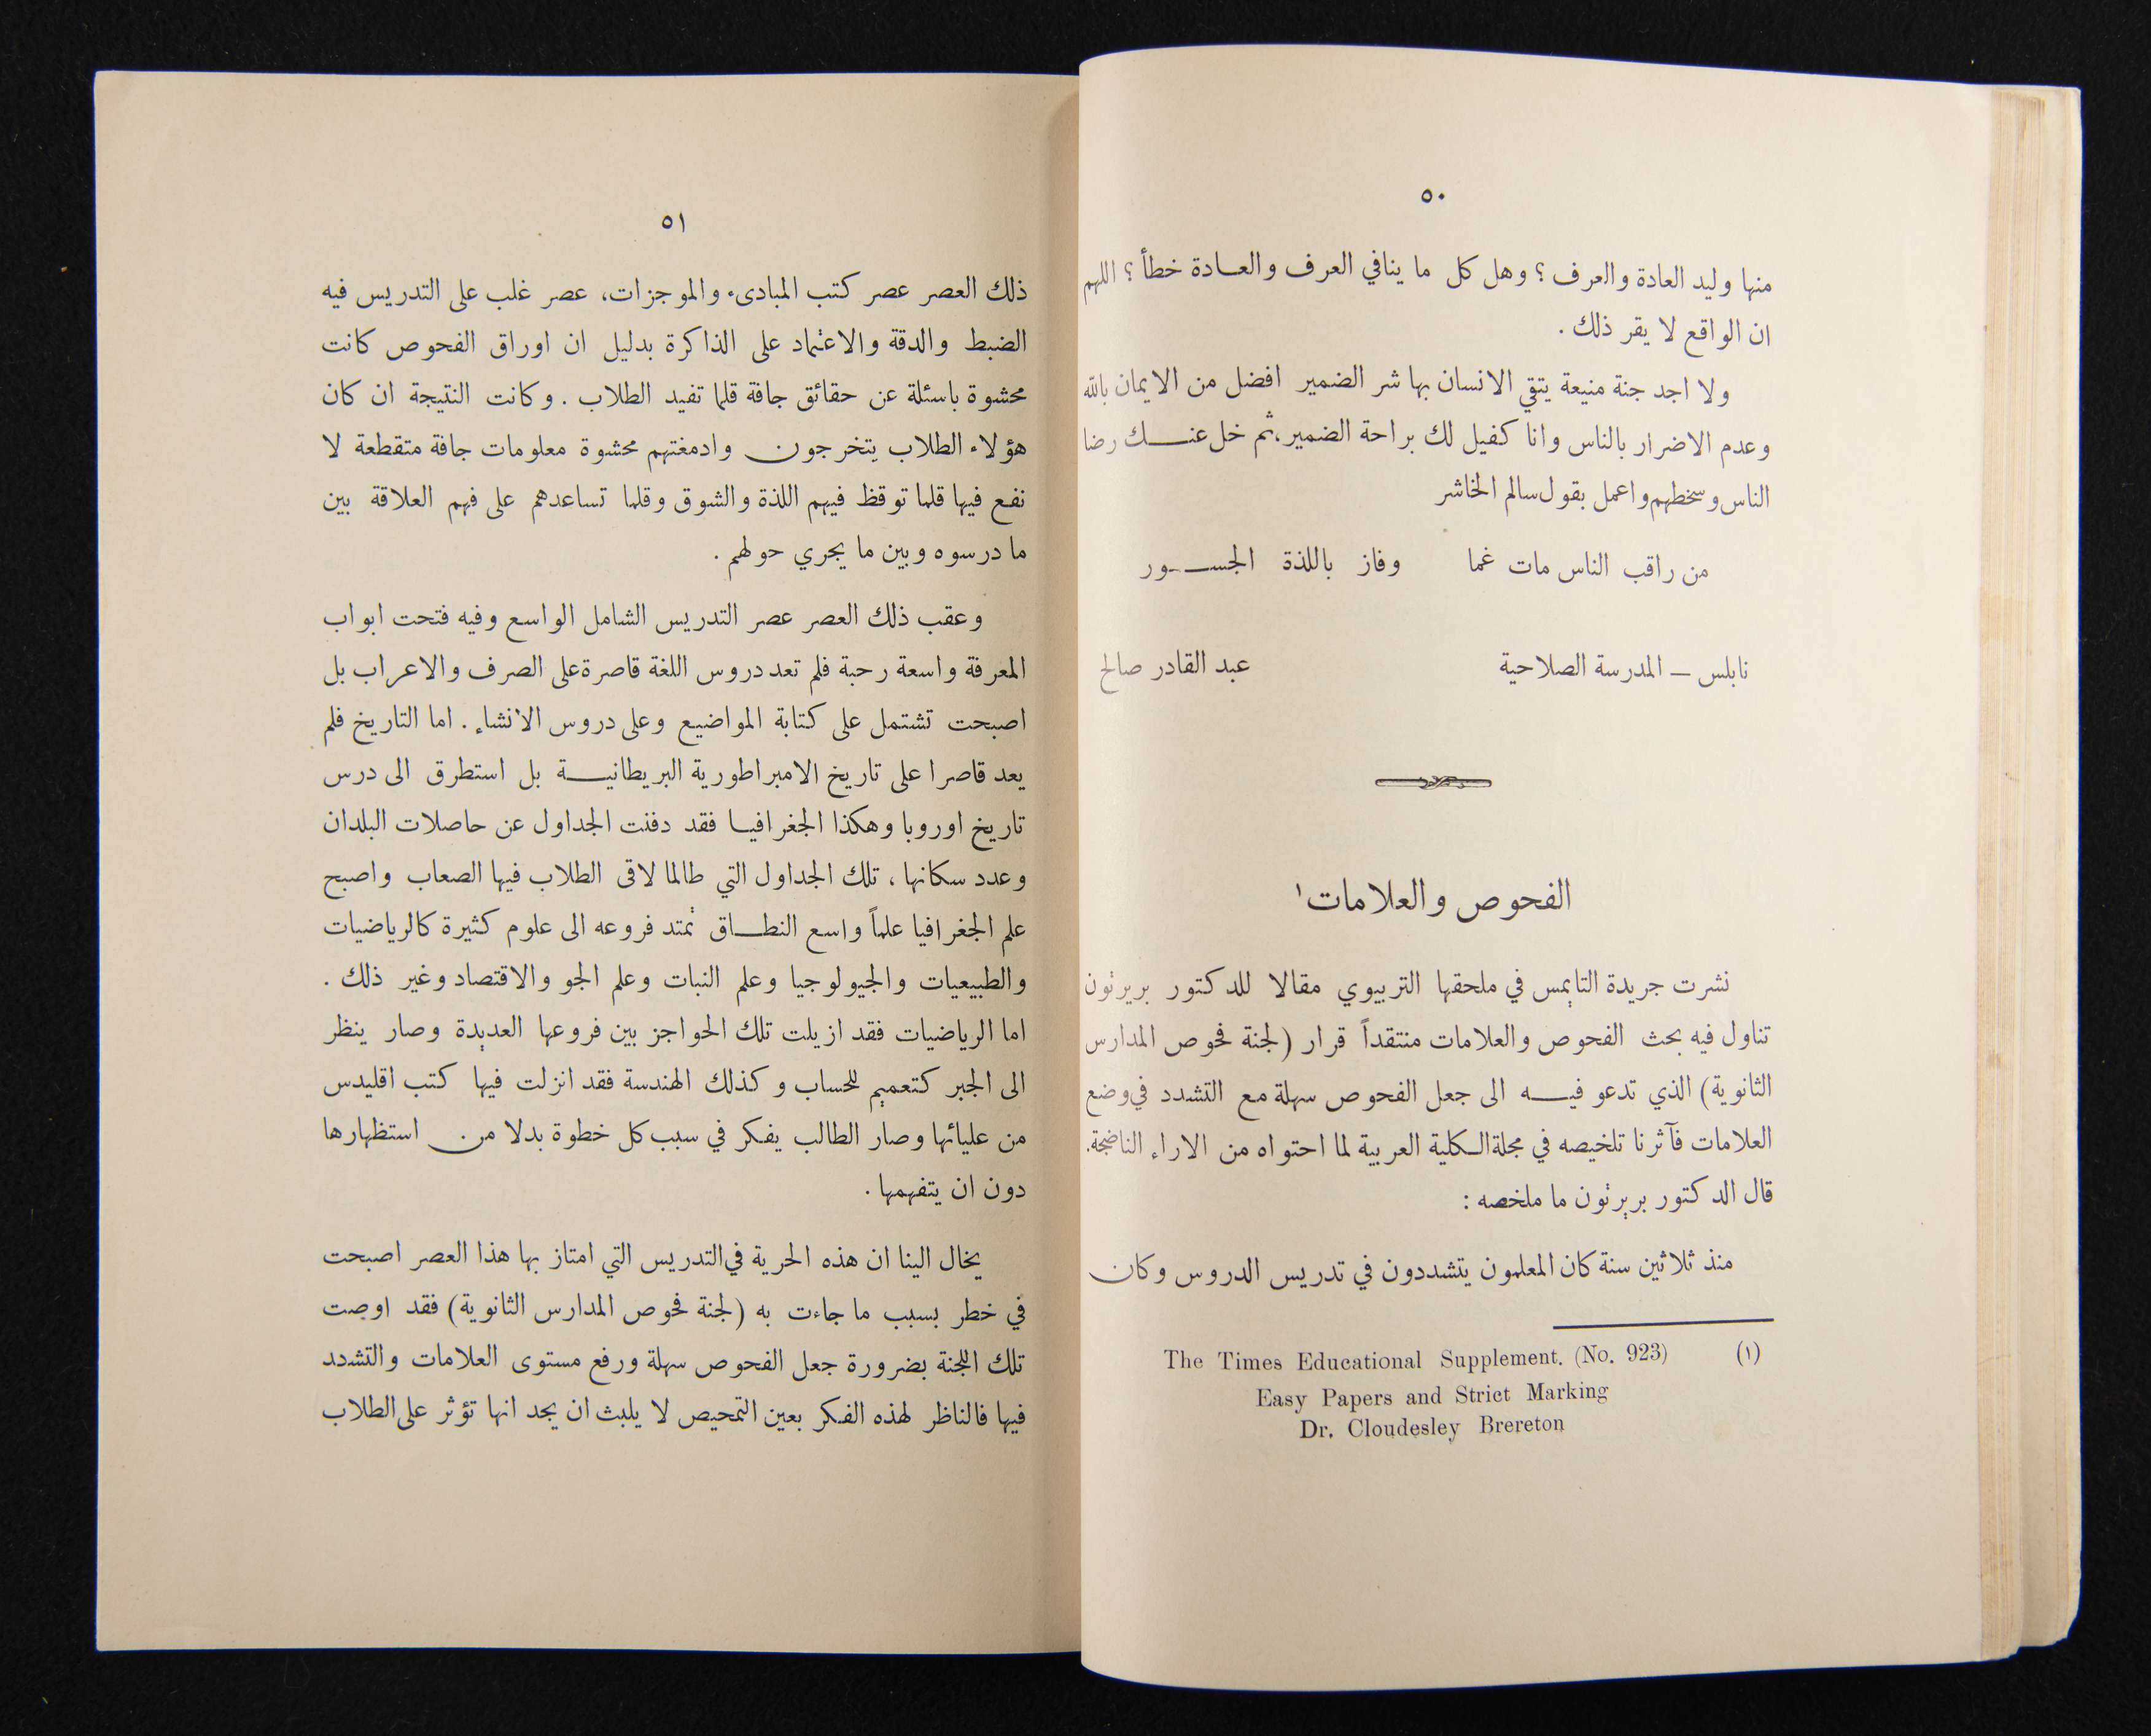 ٥٠
منها وليد العادة والعرف ؟ وهل كل ما ينافي العرف والعادة خطأ ؟ اللهم
ان الواقع لا يقر ذلك .
ولا اجد جنة منيعة يتقي الانسان بها شر الضمير افضل من الايمان بالله
وعدم الاضرار بالناس وانا كفيل لك براحة الضمير، ثم خل عنك رضا
الناس وسخطهم واعمل بقول سالم الخاشر
من راقب الناس مات غما وفاز باللذة الجسور
نابلس — المدرسة الصلاحية عبد القادر صالح
الفحوص والعلامات ١
نشرت جريدة التايمس في ملحقها التربيوي مقالا للدكتور بريرتون
تناول فيه بحث الفحوص والعلامات منتقداً قرار (لجنة فحوص المدارس
الثانوية) الذي تدعو فيه الى جعل الفحوص سهلة مع التشدد في وضع
العلامات فآثرنا تلخيصه في مجلة الكلية العربية لما احتواه من الاراء الناضجة.
قال الدكتور بريرتون ما ملخصه :
منذ ثلاثين سنة كان المعلمون يتشددون في تدريس الدروس وكان
(١) The Times Educational Supplement. (No. 923)
Easy Papers and Strict Marking
Dr. Cloudesley Brereton
٥١
ذلك العصر عصر كتب المبادىء والموجزات، عصر غلب على التدريس فيه
الضبط والدقة والاعتماد على الذاكرة بدليل ان اوراق الفحوص كانت
محشوة باسئلة عن حقائق جافة قلما تفيد الطلاب . وكانت النتيجة ان كان
هؤلاء الطلاب يتخرجون وادمغتهم محشوة معلومات جافة متقطعة لا
نفع فيها قلما توقظ فيهم اللذة والشوق وقلما تساعدهم على فهم العلاقة بين
ما درسوه وبين ما يجري حولهم .
وعقب ذلك العصر عصر التدريس الشامل الواسع وفيه فتحت ابواب
المعرفة واسعة رحبة فلم تعد دروس اللغة قاصرة على الصرف والاعراب بل
اصبحت تشتمل على كتابة المواضيع وعلى دروس الانشاء . اما التاريخ فلم
يعد قاصرا على تاريخ الامبراطورية البريطانية بل استطرق الى درس
تاريخ اوروبا وهكذا الجغرافيا فقد دفنت الجداول عن حاصلات البلدان
وعدد سكانها ، تلك الجداول التي طالما لاقى الطلاب فيها الصعاب واصبح
علم الجغرافيا علماً واسع النطاق تمتد فروعه الى علوم كثيرة كالرياضيات
والطبيعيات والجيولوجيا وعلم النبات وعلم الجو والاقتصاد وغير ذلك .
اما الرياضيات فقد ازيلت تلك الحواجز بين فروعها العديدة وصار ينظر
الى الجبر كتعميم للحساب وكذلك الهندسة فقد انزلت فيها كتب اقليدس
من عليائها وصار الطالب يفكر في سبب كل خطوة بدلا من استظهارها
دون ان يتفهمها .
يخال الينا ان هذه الحرية في التدريس التي امتاز بها هذا العصر اصبحت
في خطر بسبب ما جاءت به (لجنة فحوص المدارس الثانوية) فقد اوصت
تلك اللجنة بضرورة جعل الفحوص سهلة ورفع مستوى العلامات والتشدد
فيها فالناظر لهذه الفكر بعين التمحيص لا يلبث ان يجد انها تؤثر على الطلاب